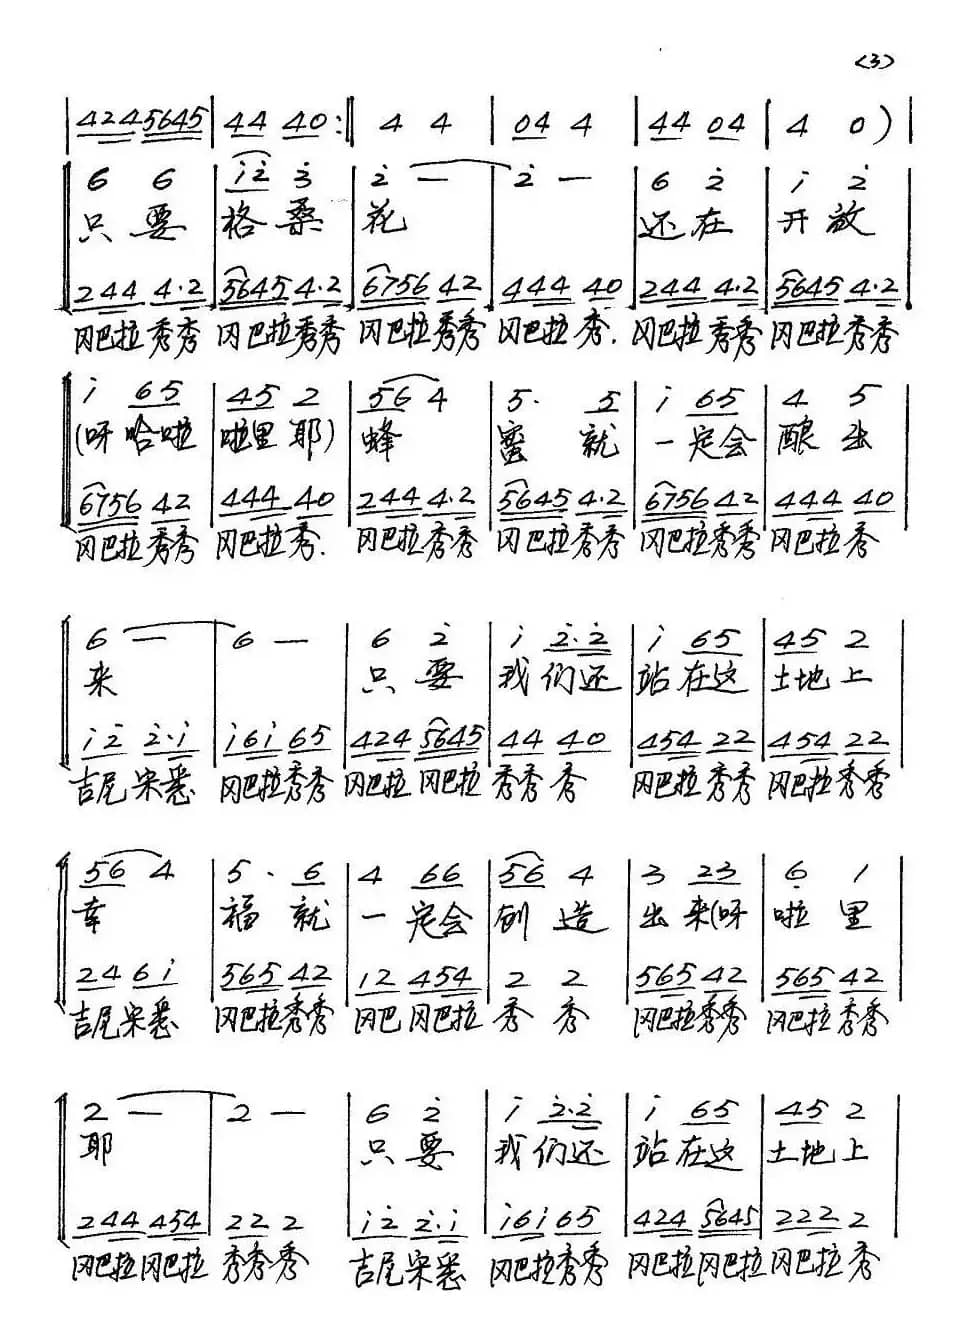 (3)
| 424 5645 | 44 40 :|| 4 4 | 04 4 | 44 04 | 4 0 ) |
6 6 | i̇2̇ 3̇ | 2̇ — | 2̇ — | 6 2̇ | i̇ 2̇
只要 格桑 花 还在 开放
244 4·2 | 5645 4·2 | 6756 42 | 444 40 | 244 4·2 | 5645 4·2
冈巴拉秀秀 冈巴拉秀秀 冈巴拉秀秀 冈巴拉秀. 冈巴拉秀秀 冈巴拉秀秀
i̇ 65 | 45 2 | 56 4 | 5· 5 | i̇ 65 | 4 5
(呀哈啦 啦里耶) 蜂 蜜就 一定会 酿出
6756 42 | 444 40 | 244 4·2 | 5645 4·2 | 6756 42 | 444 40
冈巴拉秀秀 冈巴拉秀. 冈巴拉秀秀 冈巴拉秀秀 冈巴拉秀秀 冈巴拉秀
6 — | 6 — | 6 2̇ | i̇ 2̇·2̇ | i̇ 65 | 45 2
来 只要 我们还 站在这 土地上
i̇2̇ 2̇·i̇ | i̇6i̇ 65 | 424 5645 | 44 40 | 454 22 | 454 22
吉尾宋悉 冈巴拉秀秀 冈巴拉冈巴拉 秀秀秀 冈巴拉秀秀 冈巴拉秀秀
56 4 | 5· 6 | 4 66 | 56 4 | 3 23 | 6̣ 1
幸 福就 一定会 创造 出来(呀 啦里
24 6i̇ | 565 42 | 12 454 | 2 2 | 565 42 | 565 42
吉尾宋悉 冈巴拉秀秀 冈巴冈巴拉 秀秀 冈巴拉秀秀 冈巴拉秀秀
2 — | 2 — | 6 2̇ | i̇ 2̇·2̇ | i̇ 65 | 45 2
耶 只要 我们还 站在这 土地上
244 454 | 22 2 | i̇2̇ 2̇·i̇ | i̇6i̇ 65 | 424 5645 | 222 2
冈巴拉冈巴拉 秀秀秀 吉尾宋悉 冈巴拉秀秀 冈巴拉冈巴拉 冈巴拉秀